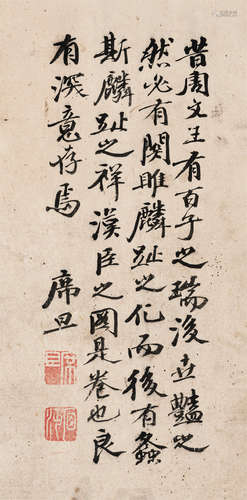 昔周文王有百子之瑞後世豔之
然必有關雎麟趾之化而後有螽
斯麟趾之祥漢臣之圖是卷也良
有深意存焉
席旦